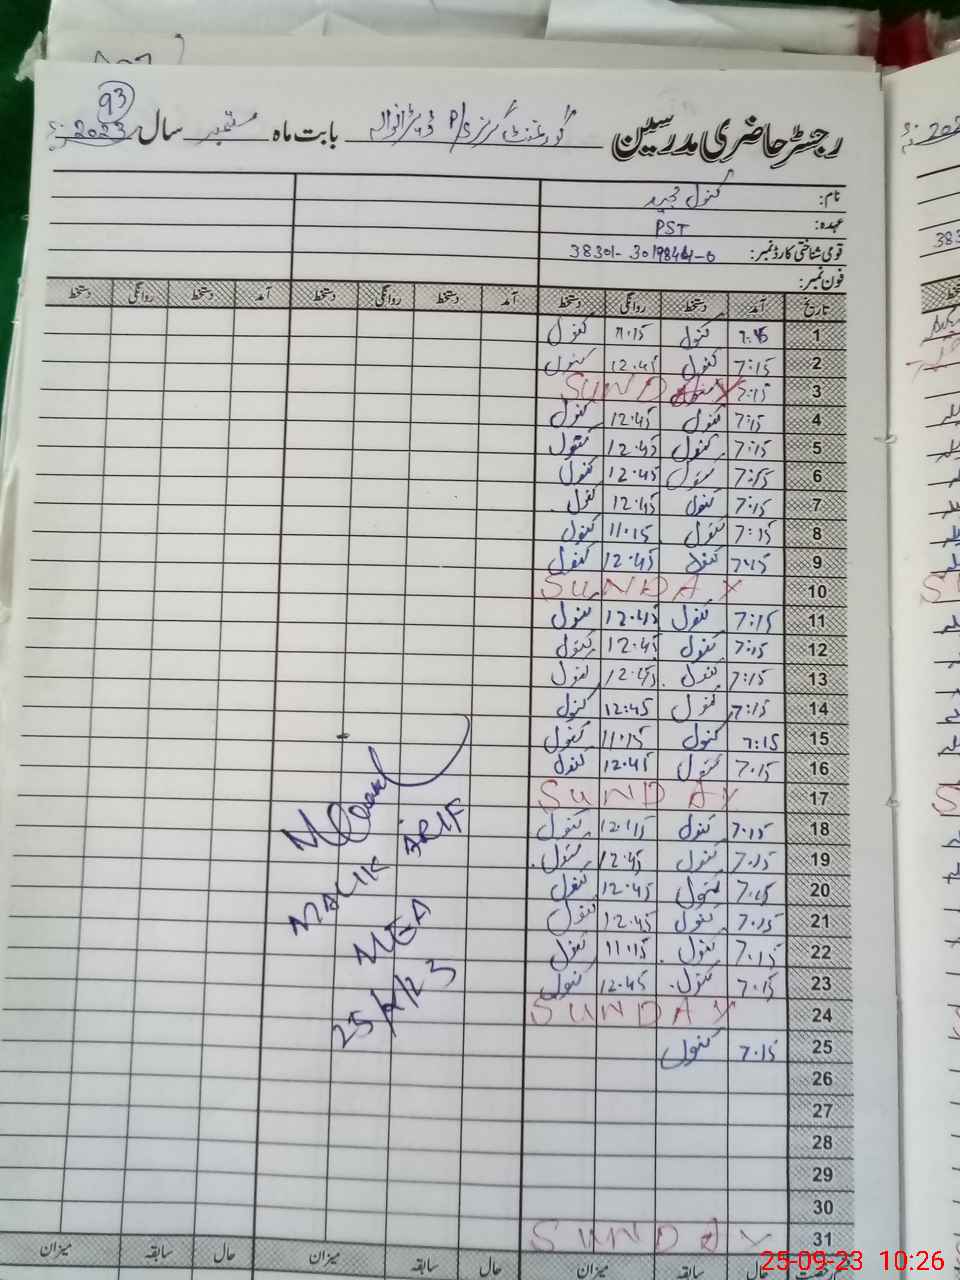 93
رجسٹر حاضری مدرسین گورنمنٹ گرلز P/S بابت ماہ ستمبر سال 2023
نام: کنول مجید
عہدہ: PST
قومی شناختی کارڈ نمبر:
فون نمبر:
تاریخ آمد دستخط روانگی دستخط آمد دستخط روانگی دستخط آمد دستخط روانگی دستخط
1 کنول 11:15 کنول
2 7:15 کنول 12:45 کنول
3 7:15 SUNDAY
4 7:15 کنول 12:45 کنول
5 7:15 کنول 12:45 کنول
6 7:15 کنول 12:45 کنول
7 7:15 کنول 12:45 کنول
8 7:15 کنول 11:15 کنول
9 7:15 کنول 12:45 کنول
10 SUNDAY
11 7:15 کنول 12:45 کنول
12 7:15 کنول 12:45 کنول
13 7:15 کنول 12:45 کنول
14 7:15 کنول 12:45 کنول
15 7:15 کنول 11:15 کنول
16 7:15 کنول 12:45 کنول
17 SUNDAY
18 7:15 کنول 12:45 کنول
19 7:15 کنول 12:45 کنول
20 7:15 کنول 12:45 کنول
21 7:15 کنول 12:45 کنول
22 7:15 کنول 11:15 کنول
23 7:15 کنول 12:45 کنول
24 SUNDAY
25 7:15 کنول
26
27
28
29
30
31 SUNDAY
MALIK ARIF
MEA
25/9/23
حال سابقہ میزان حال سابقہ میزان حال سابقہ میزان
25-09-23 10:26